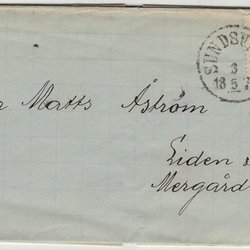 SUNDSV
3
18 5
Matts Åström
Liden
Mergård